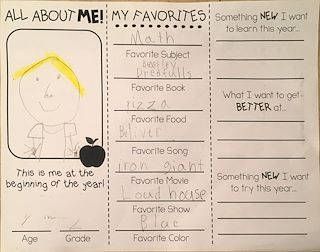 ALL ABOUT ME!
This is me at the
beginning of the year!
Age
Grade
MY FAVORITES
Math
Favorite Subject
Beastley
Dredfulls
Favorite Book
Pizza
Favorite Food
Beliver
Favorite Song
iron giant
Favorite Movie
Loud house
Favorite Show
Blac
Favorite Color
Something NEW I want
to learn this year...
What I want to get
BETTER at...
Something NEW I want
to try this year...